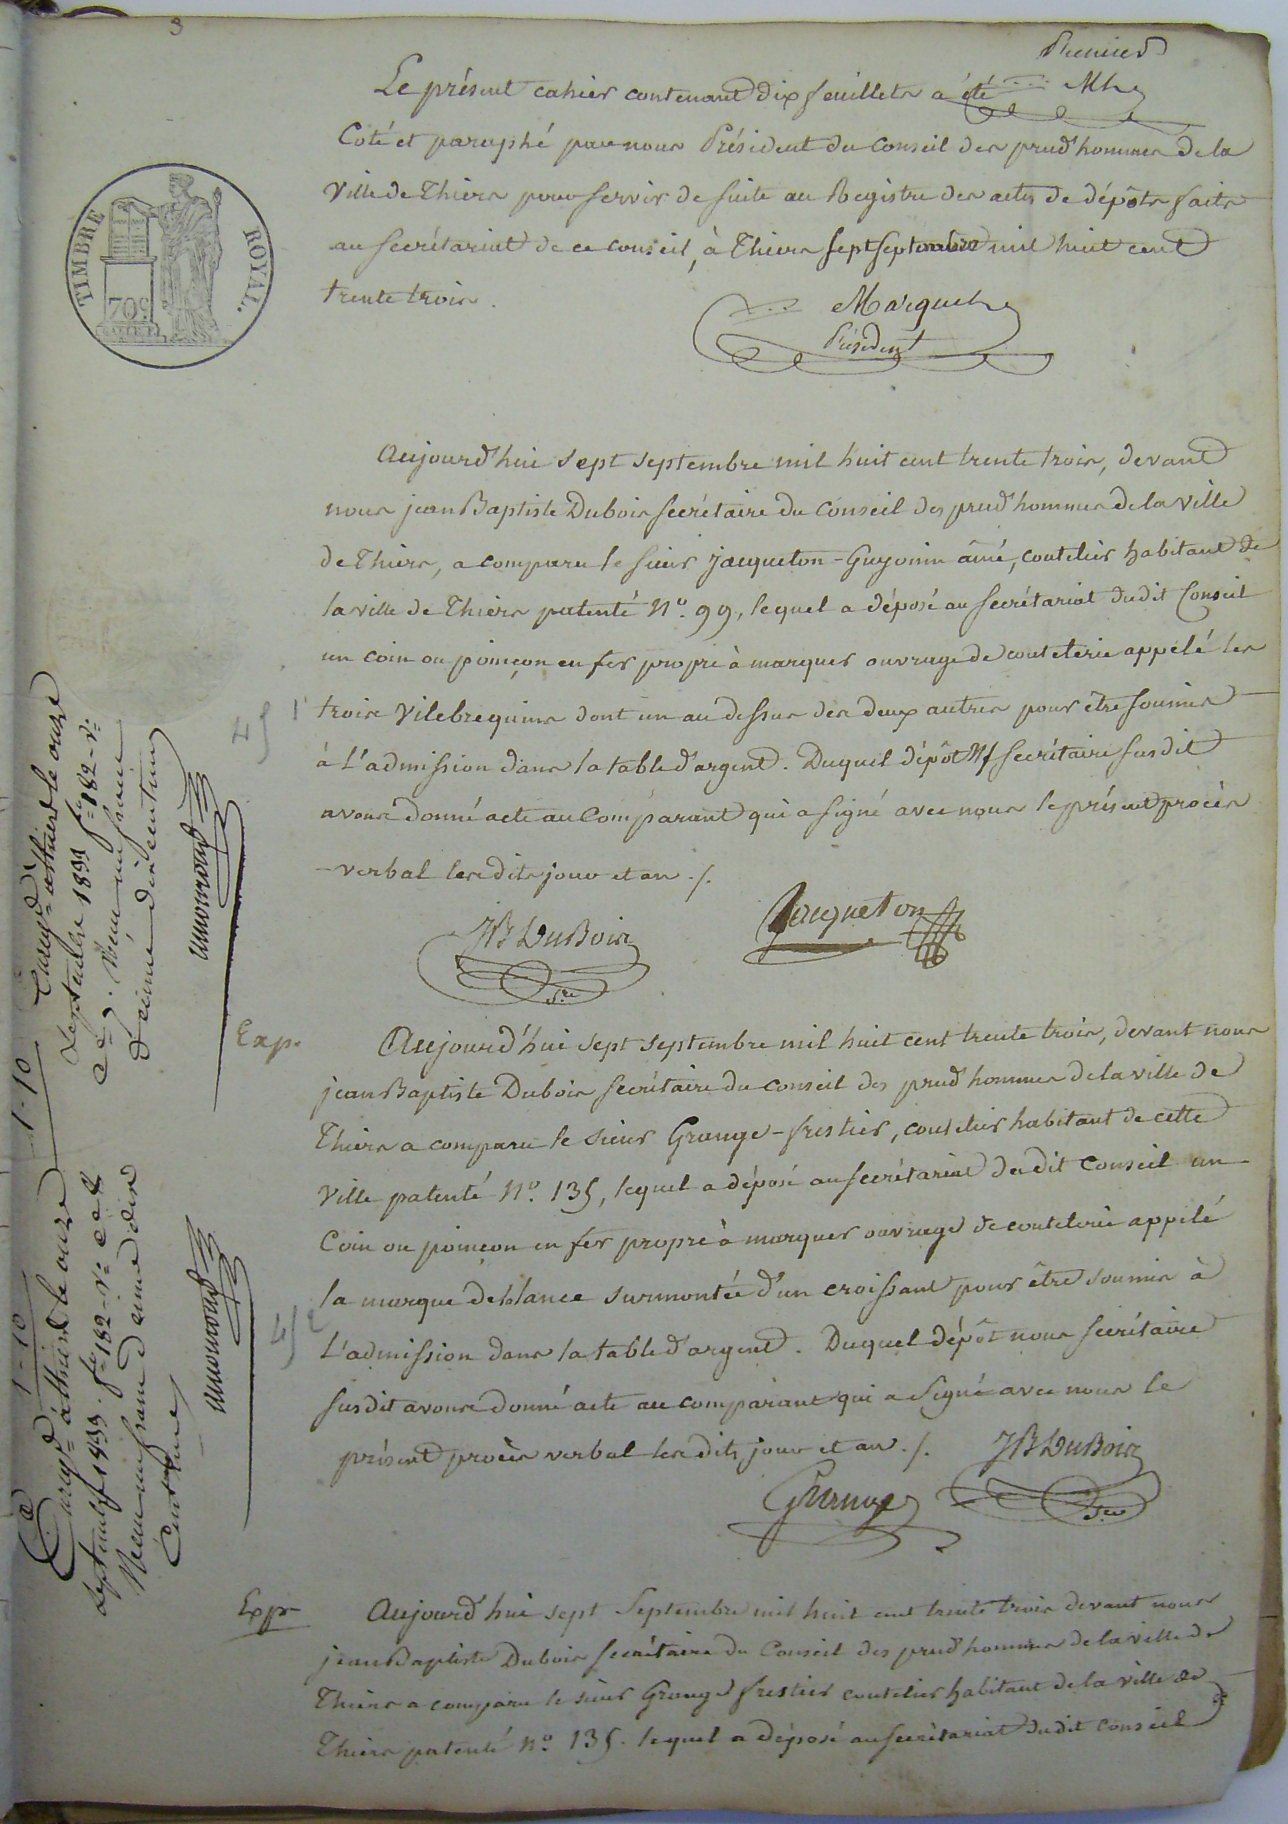 Premier
Mh
Le présent cahier contenant dix feuillets a été
Coté et paraphé par nous Président du Conseil des prud'hommes de la
Ville de Thiers pour servir de suite au Registre des actes de dépôts faits
au secrétariat de ce conseil, à Thiers sept septembre mil huit cent
trente trois.
Marquet
Président
TIMBRE ROYAL.
70c
Aujourd'hui sept septembre mil huit cent trente trois, devant
nous jean Baptiste Dubois secrétaire du Conseil des prud'hommes de la ville
de Thiers, a comparu le sieur Jacqueton-Guyonin aîné, coutelier habitant de
la ville de Thiers patenté No. 99, lequel a déposé au secrétariat dudit Conseil
un coin ou poinçon en fer propre à marquer ouvrage de coutelerie appelé les
trois Vilebrequins dont un au dessus des deux autres pour être soumis
à l'admission dans la table d'argent. Duquel dépôt Ns secrétaire susdit
avons donné acte au Comparant qui a signé avec nous le présent procès
-verbal lesdits jour et an ./.
JB DuBois
Sre
Jacqueton
451
Exp.
Aujourd'hui sept septembre mil huit cent trente trois, devant nous
jean Baptiste Dubois secrétaire du conseil des prud'hommes de la ville de
Thiers a comparu le sieur Grange-frestier, coutelier habitant de cette
Ville patenté No. 135, lequel a déposé au secrétariat dudit Conseil un
Coin ou poinçon en fer propre à marquer ouvrage de coutelerie appelé
la marque de blance surmontée d'un croissant pour être soumis à
L'admission dans la table d'argent. Duquel dépôt nous secrétaire
susdit avons donné acte au comparant qui a Signé avec nous le
présent procès verbal lesdits jour et an ./.
JB DuBois
Sre
Grange
452
Exp.
Aujourd'hui sept Septembre mil huit cent trente trois devant nous
jean Baptiste Dubois secrétaire du Conseil des prud'hommes de la ville de
Thiers a comparu le sieur Grange frestier coutelier habitant de la ville de
Thiers patenté no. 135. lequel a déposé au secrétariat dudit conseil
1-10
Enregé à Thiers le onze
septembre 1833 fo 182 vo
Ce 9. Reçu un franc
decime dix centimes
1-10
Enregé à Thiers le onze
septembre 1833. fo 182 vo Ce 8
Reçu un franc decime dix
Centimes